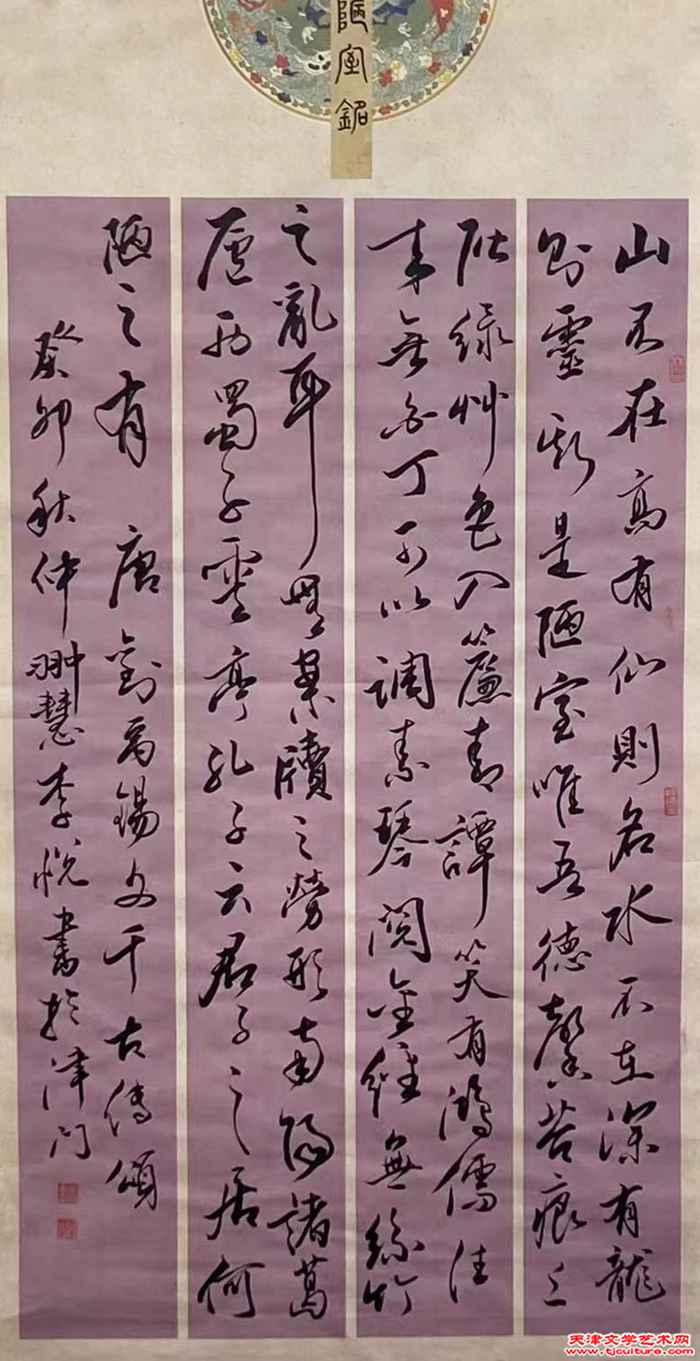 陋室銘
山不在高有仙則名水不在深有龍
則靈斯是陋室唯吾德馨苔痕上
階綠艸色入簾青譚笑有鴻儒往
来無白丁可以調素琴閱金經無絲竹
之亂耳無案牘之勞形南陽諸葛
廬西蜀子雲亭孔子云君子之居何
陋之有 唐劉禹錫文千古傳頌
癸卯秋仲翀慧李悅書於津門
天津文学艺术网
www.tjculture.com